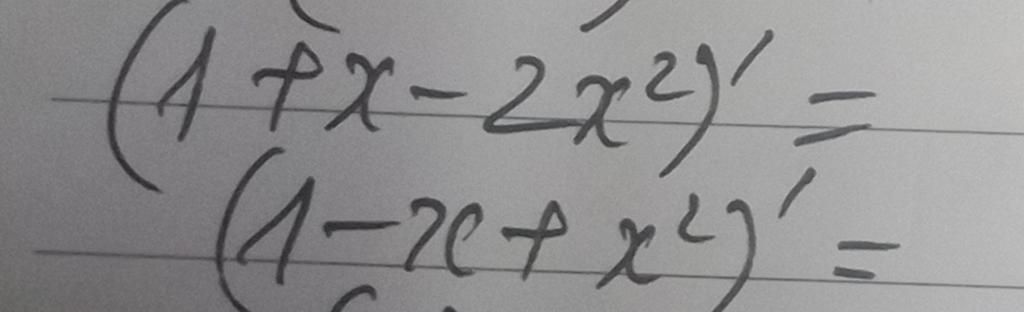 (1 + x - 2x²)' =
(1 - x + x²)' =